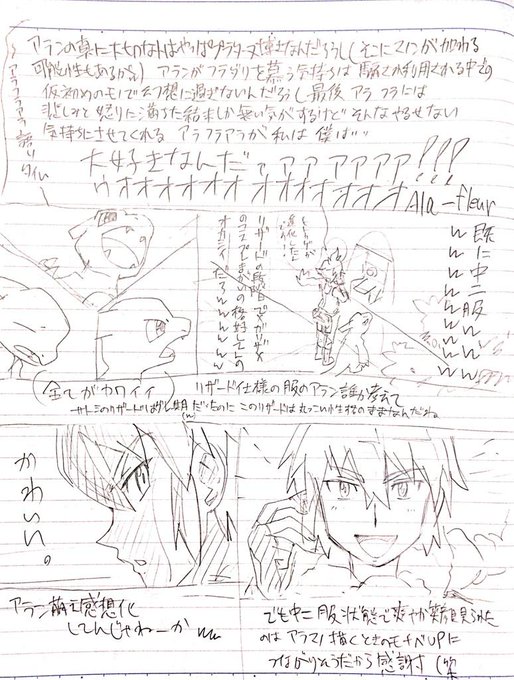 アランの真に大切な人はやっぱプラターヌ博士なんだろうし(そこにマノンが加わる
可能性もあるから) アランがフラダリを慕う気持ちは騙され利用される中での
仮初めのモノで幻想に過ぎないんだろうし最後アラフラには
悲しみと怒りに満ちた結末しか無い気がするけどそんなやるせない
気持ちにさせてくれるアラフラアラが私は僕は…
大好きなんだァァァァァァァ!!!
ウオオオオオオオオオオオオオオ
Ala-fleur
語りタイム
既に中二服wwwww
リザードの段階でガリザXの
コスでまがいの格好してんの
オカシイだろwwwww
全てがカワイイ
リザード仕様の服のアラン誰か考えて
サトミのリザードはグレ期だったのにこのリザードはカッコいい性格のままなんだね
かわいい。
アラン萌え感想化
してんじゃねーかww
でも中二服状態で爽やか笑顔見られた
のはアラマノ描くときのモチベUPに
つながりそうだから感謝す(笑